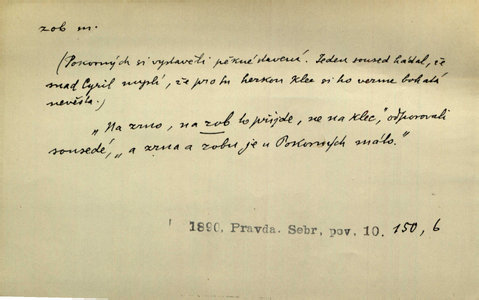 zob m.
(Pokorných si vystavěli pěkné stavení. Jeden soused hádal, že
snad Cyril myslí, že pro tu hezkou klec si ho vezme bohatá
nevěsta.)
„Na zrno, na zob to přijde, ne na klec,“ odporovali
sousedé, „a zrna a zobu je u Pokorných málo.“
1890. Pravda. Sebr. pov. 10. 150, 6